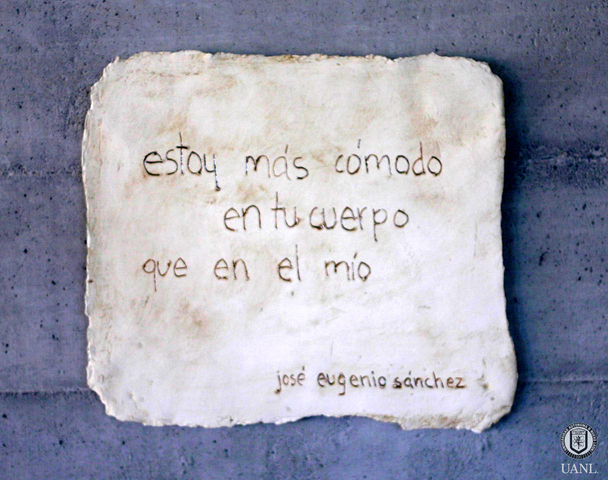 estoy más cómodo
en tu cuerpo
que en el mío
josé eugenio sánchez
UANL